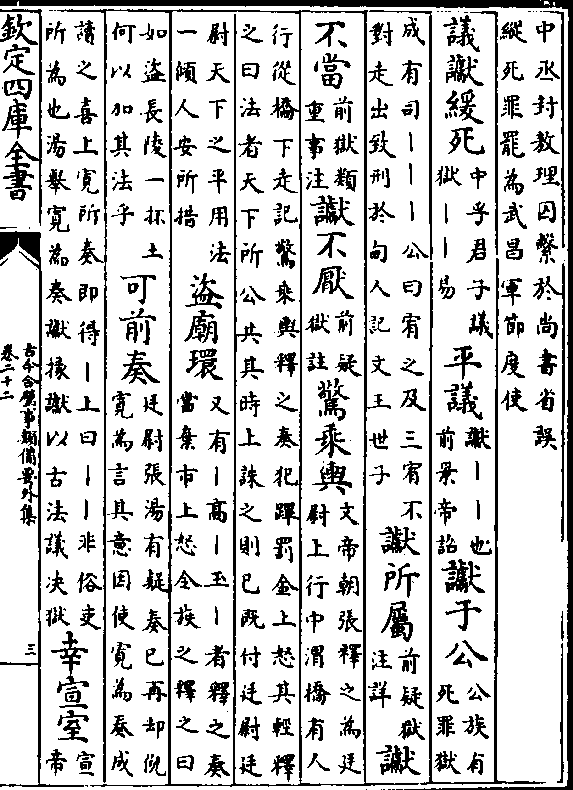 中丞封教理囚繫於尚書省誤
縱死罪罷為武昌軍節度使
議讞緩死
中孚君子議
獄丨丨易
平議
讞丨丨也
前景帝詔
讞于公
公族有
死罪獄
成有司丨丨丨公曰宥之及三宥不
對走出致刑於甸人記文王世子
讞所屬
前疑獄
注詳
讞
不當
前獄類
重事注
讞不厭
前疑
獄註
驚乘輿
文帝朝張釋之為廷
尉上行中渭橋有人
行從橋下走記驚乘輿釋之奏犯蹕罰金上怒其輕釋
之曰法者天下所公共其時上誅之則已既付廷尉廷
尉天下之平用法
一傾人安所措
盜廟環
又有丨高丨玉丨者釋之奏
當棄市上怒令族之釋之曰
如盜長陵一抔土
何以加其法乎
可前奏
廷尉張湯有疑奏已再却倪
寛為言其意因使寛為奏成
請之喜上寛所奏即得丨上曰丨丨非俗吏
所為也湯舉寛為奏讞掾讞以古法議决獄
幸宣室
宣
帝
欽定四庫全書
古今合璧事類備要外集
卷二十二
三